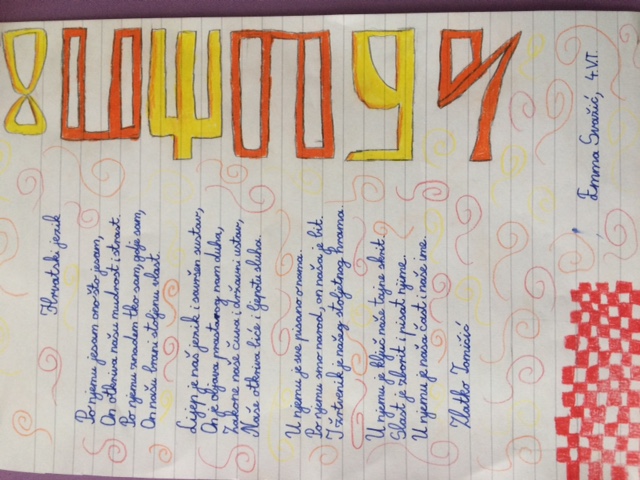 Hrvatski jezik
Po njemu jesam ono što jesam,
On otkriva našu mudrost i strast.
Po njemu znadem tko sam, gdje sam,
On našu brani stoljeću vlast.
Lijep je naš jezik i savršen sustav,
On je objava prastarog nam duha,
Zakone naše čuva i državni ustav,
Naše otkriva biće i ljepotu sluha.
U njemu je sve pisano
Po njemu smo narod, on naša je bit.
I žrtvenik je našeg stoljetnog hrama.
U njemu je ključ naše tajne skrit.
Slast je zborit i pisat njime.
U njemu je naša čast i naše ime.
Zlatko Tomičić
Emma 4.V.T.